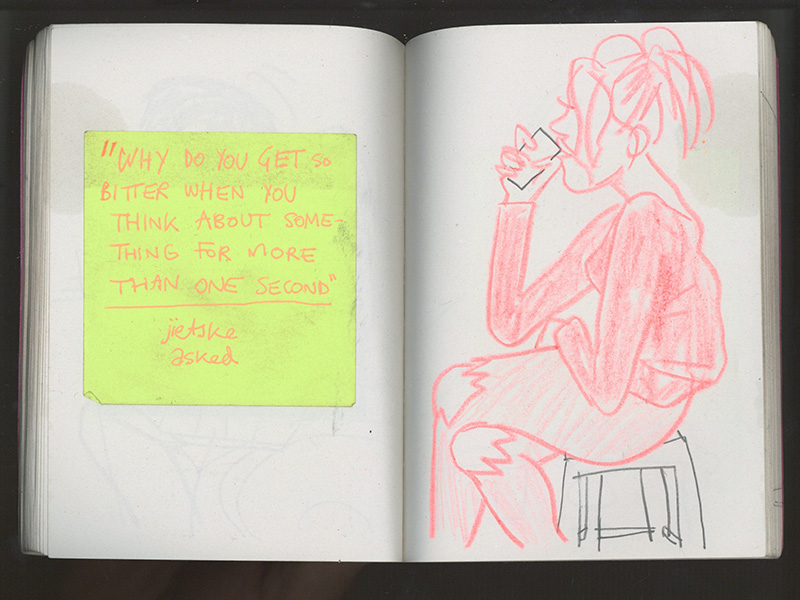 "WHY DO YOU GET SO
BITTER WHEN YOU
THINK ABOUT SOME-
THING FOR MORE
THAN ONE SECOND"
jietske
asked